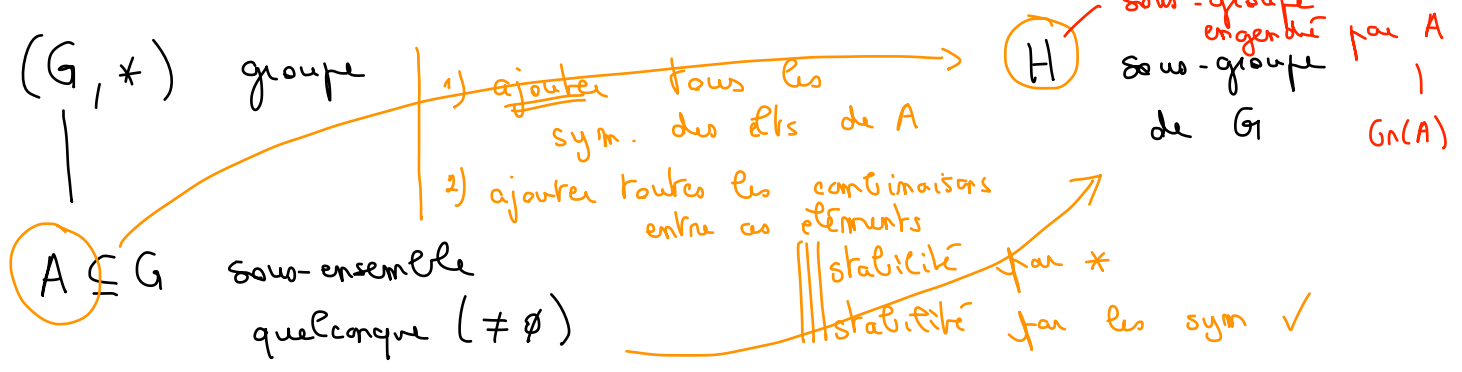 (G, *) groupe
A ⊆ G sous-ensemble
quelconque (≠ ∅)
1) ajouter tous les
sym. des élts de A
2) ajouter toutes les combinaisons
entre ces éléments
stabilité par *
stabilité par les sym ✓
H sous-groupe
de G
sous-groupe
engendré par A
Gr(A)